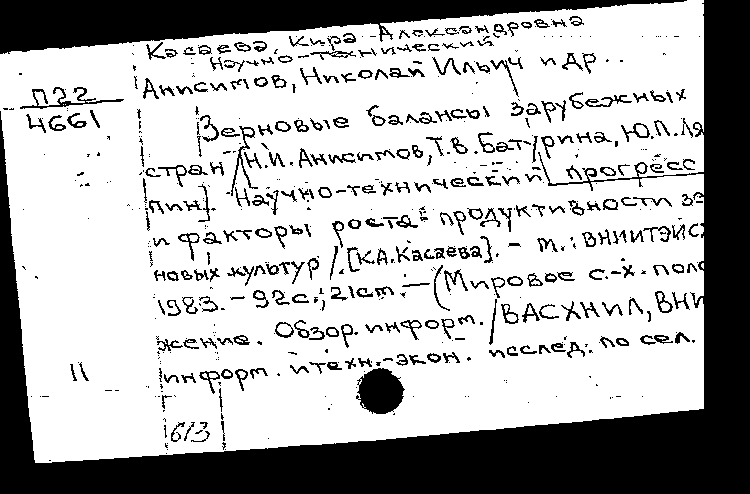 Касаева, Кира Александровна
Научно-технический
Анисимов, Николай Ильич и др..
П22
4661
Зерновые балансы зарубежных
стран /Н.И. Анисимов, Т.В. Батурина, Ю.П. Ля
пин]. Научно-технический прогресс
и факторы роста продуктивности зе
новых культур /.[К.А. Касаева]. - М.: ВНИИТЭИСХ
1983. - 92 с.; 21 см. - (Мировое с.-х. поло
жение. Обзор. информ. /ВАСХНИЛ, ВНИ
информ. и техн.-экон. исслед. по сел.
11
613